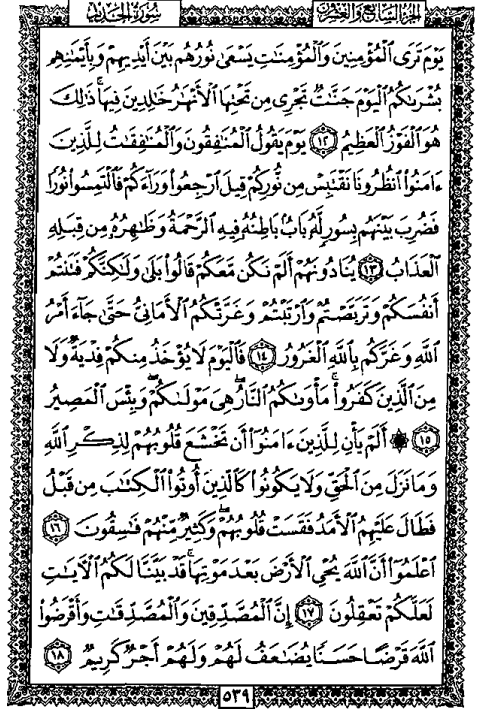 الجزء السابع والعشرون سورة الحديد
يَوْمَ تَرَى ٱلْمُؤْمِنِينَ وَٱلْمُؤْمِنَٰتِ يَسْعَىٰ نُورُهُم بَيْنَ أَيْدِيهِمْ وَبِأَيْمَٰنِهِم
بُشْرَىٰكُمُ ٱلْيَوْمَ جَنَّٰتٌ تَجْرِى مِن تَحْتِهَا ٱلْأَنْهَٰرُ خَٰلِدِينَ فِيهَا ۚ ذَٰلِكَ
هُوَ ٱلْفَوْزُ ٱلْعَظِيمُ ١٢ يَوْمَ يَقُولُ ٱلْمُنَٰفِقُونَ وَٱلْمُنَٰفِقَٰتُ لِلَّذِينَ
ءَامَنُوا۟ ٱنظُرُونَا نَقْتَبِسْ مِن نُّورِكُمْ قِيلَ ٱرْجِعُوا۟ وَرَآءَكُمْ فَٱلْتَمِسُوا۟ نُورًا
فَضُرِبَ بَيْنَهُم بِسُورٍ لَّهُۥ بَابٌۢ بَاطِنُهُۥ فِيهِ ٱلرَّحْمَةُ وَظَٰهِرُهُۥ مِن قِبَلِهِ
ٱلْعَذَابُ ١٣ يُنَادُونَهُمْ أَلَمْ نَكُن مَّعَكُمْ ۖ قَالُوا۟ بَلَىٰ وَلَٰكِنَّكُمْ فَتَنتُمْ
أَنفُسَكُمْ وَتَرَبَّصْتُمْ وَٱرْتَبْتُمْ وَغَرَّتْكُمُ ٱلْأَمَانِىُّ حَتَّىٰ جَآءَ أَمْرُ
ٱللَّهِ وَغَرَّكُم بِٱللَّهِ ٱلْغَرُورُ ١٤ فَٱلْيَوْمَ لَا يُؤْخَذُ مِنكُمْ فِدْيَةٌ وَلَا
مِنَ ٱلَّذِينَ كَفَرُوا۟ ۚ مَأْوَىٰكُمُ ٱلنَّارُ ۖ هِىَ مَوْلَىٰكُمْ ۖ وَبِئْسَ ٱلْمَصِيرُ
١٥ ۞ أَلَمْ يَأْنِ لِلَّذِينَ ءَامَنُوٓا۟ أَن تَخْشَعَ قُلُوبُهُمْ لِذِكْرِ ٱللَّهِ
وَمَا نَزَلَ مِنَ ٱلْحَقِّ وَلَا يَكُونُوا۟ كَٱلَّذِينَ أُوتُوا۟ ٱلْكِتَٰبَ مِن قَبْلُ
فَطَالَ عَلَيْهِمُ ٱلْأَمَدُ فَقَسَتْ قُلُوبُهُمْ ۖ وَكَثِيرٌ مِّنْهُمْ فَٰسِقُونَ ١٦
ٱعْلَمُوٓا۟ أَنَّ ٱللَّهَ يُحْىِ ٱلْأَرْضَ بَعْدَ مَوْتِهَا ۚ قَدْ بَيَّنَّا لَكُمُ ٱلْءَايَٰتِ
لَعَلَّكُمْ تَعْقِلُونَ ١٧ إِنَّ ٱلْمُصَّدِّقِينَ وَٱلْمُصَّدِّقَٰتِ وَأَقْرَضُوا۟
ٱللَّهَ قَرْضًا حَسَنًا يُضَٰعَفُ لَهُمْ وَلَهُمْ أَجْرٌ كَرِيمٌ ١٨
٥٣٩